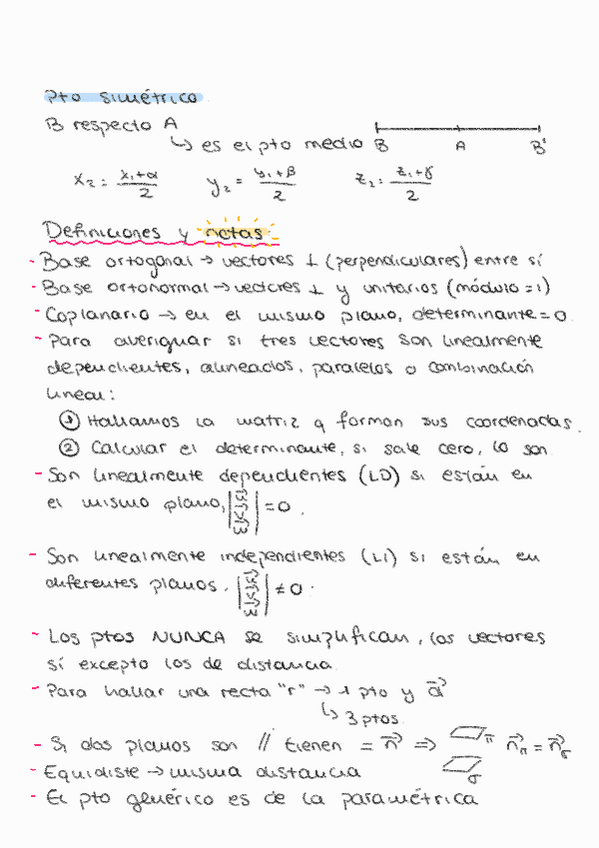 Pto simétrico
B respecto A
↳ es el pto medio B A B'
x₂ = (x₁+α)/2 y₂ = (y₁+β)/2 z₂ = (z₁+γ)/2
Definiciones y notas:
- Base ortogonal → vectores ⊥ (perpendiculares) entre sí
- Base ortonormal → vectores ⊥ y unitarios (módulo = 1)
- Coplanario → en el mismo plano, determinante = 0
- Para averiguar si tres vectores son linealmente
dependientes, alineados, paralelos o combinación
lineal:
① Hallamos la matriz q forman sus coordenadas.
② Calcular el determinante, si sale cero, lo son
- Son linealmente dependientes (LD) si están en
el mismo plano, | | = 0.
- Son linealmente independientes (LI) si están en
diferentes planos. | | ≠ 0.
- Los ptos NUNCA se simplifican, los vectores
sí excepto los de distancia
- Para hallar una recta "r" → 1 pto y d⃗
↳ 3 ptos
- Si dos planos son // tienen = n⃗ ⇒ π n⃗π = n⃗σ
- Equidiste → misma distancia σ
- El pto genérico es de la paramétrica